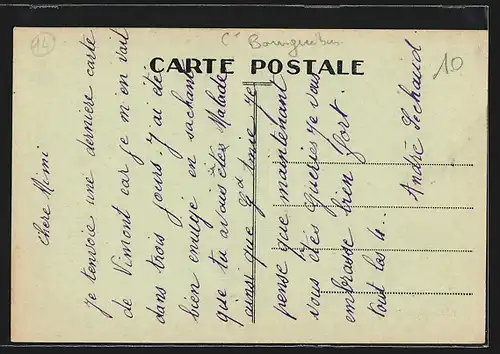 14
Cne Bourguebus
10
CARTE POSTALE
chère Mimi
Je t'envoie une dernière carte
de Vimont car je m'en vait
dans trois jours. J'ai été
bien ennuyé en sachant
que tu avais étée Malade
ainsi que Je
pense que maintenant
vous êtes Guéries Je vous
embrasse bien fort.
tout les 4.
André Lechavid